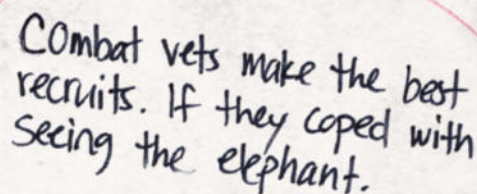 Combat vets make the best
recruits. If they coped with
seeing the elephant.